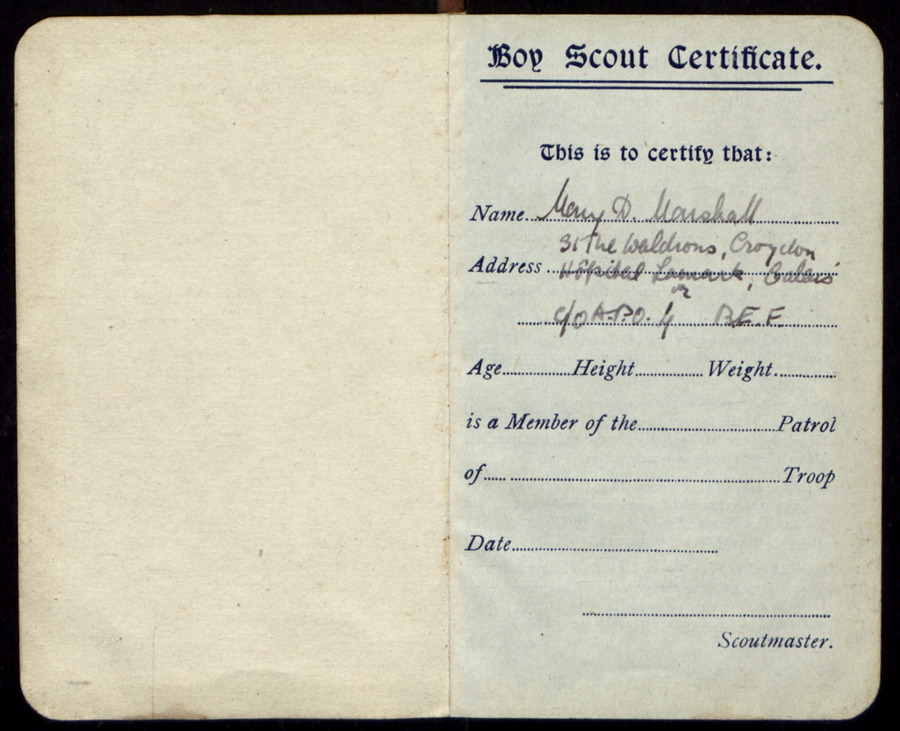 Boy Scout Certificate.
This is to certify that:
Name Mary D. Marshall
31 The Waldrons, Croydon
Address Hôpital Lamark, Calais
or
c/o A.P.O. 4 B.E.F.
Age Height Weight
is a Member of the Patrol
of Troop
Date
Scoutmaster.